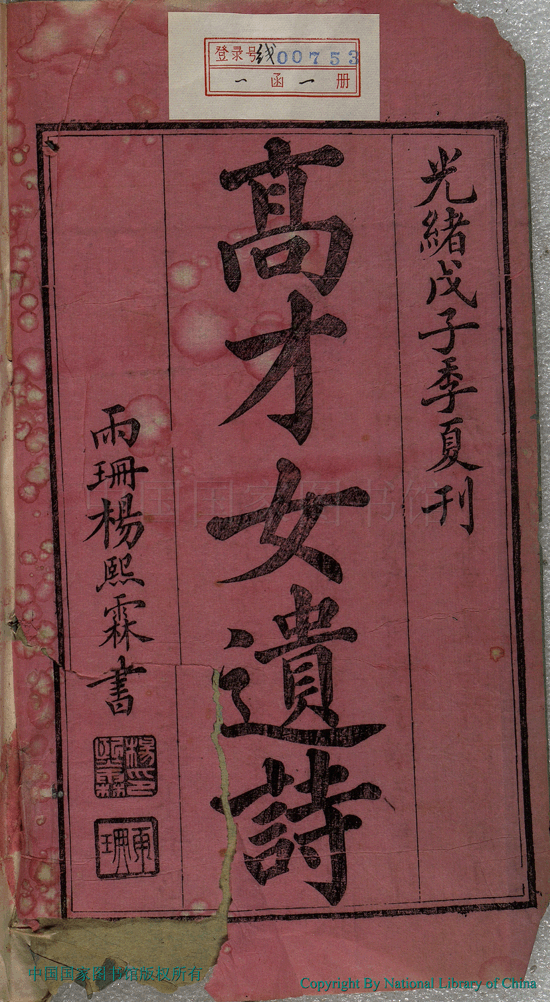 登录号 线 00753
一函一册
光緒戊子季夏刊
高才女遺詩
雨珊楊熙霖書
楊印熙霖
雨珊
中国国家图书馆
中国国家图书馆版权所有
Copyright By National Library of China